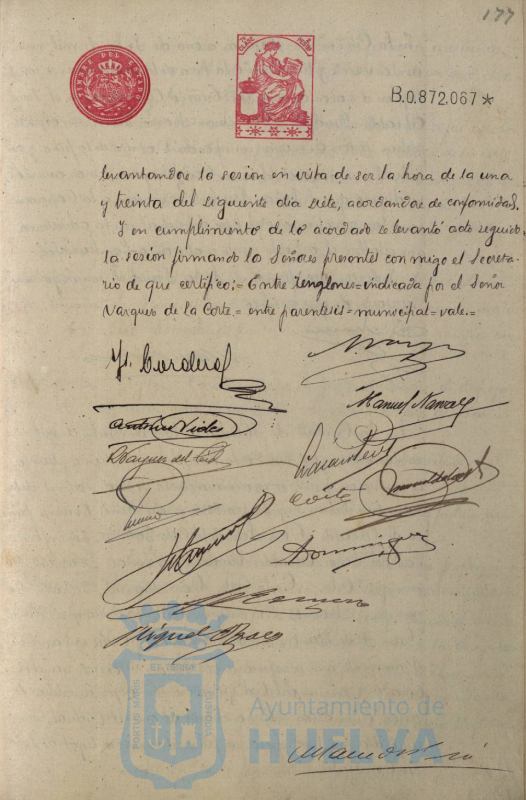 177
TIMBRE DEL ESTADO
B.0.872.067*
levantandose la sesion en vista de ser la hora de la una
y treinta del siguiente dia siete, acordandose de conformidad.
Y en cumplimiento de lo acordado se levantó acto seguido
la sesión firmando los Señores presentes con migo el Secreta-
rio de que certifico;= Entre renglones=indicada por el Señor
Vazques de la Corte.= entre parentesis=municipal=vale.=
Manuel
Antonio Vides
Corte
Dominguez
Miguel
PORTUS MARIS ET TERRÆ CUSTODIA
Ayuntamiento de
HUELVA